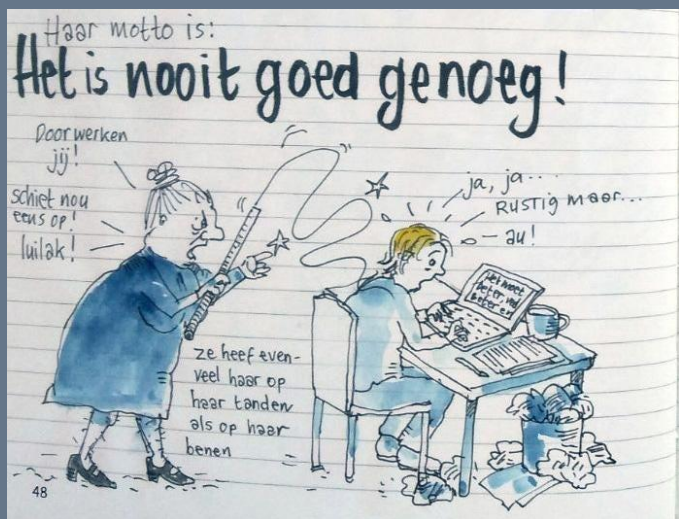 Haar motto is:
Het is nooit goed genoeg!
Doorwerken
jij!
schiet nou
eens op!
luilak!
ja, ja...
RUSTIG maar...
au!
Het moet
beter
beter en
ze heef even-
veel haar op
haar tanden
als op haar
benen
48